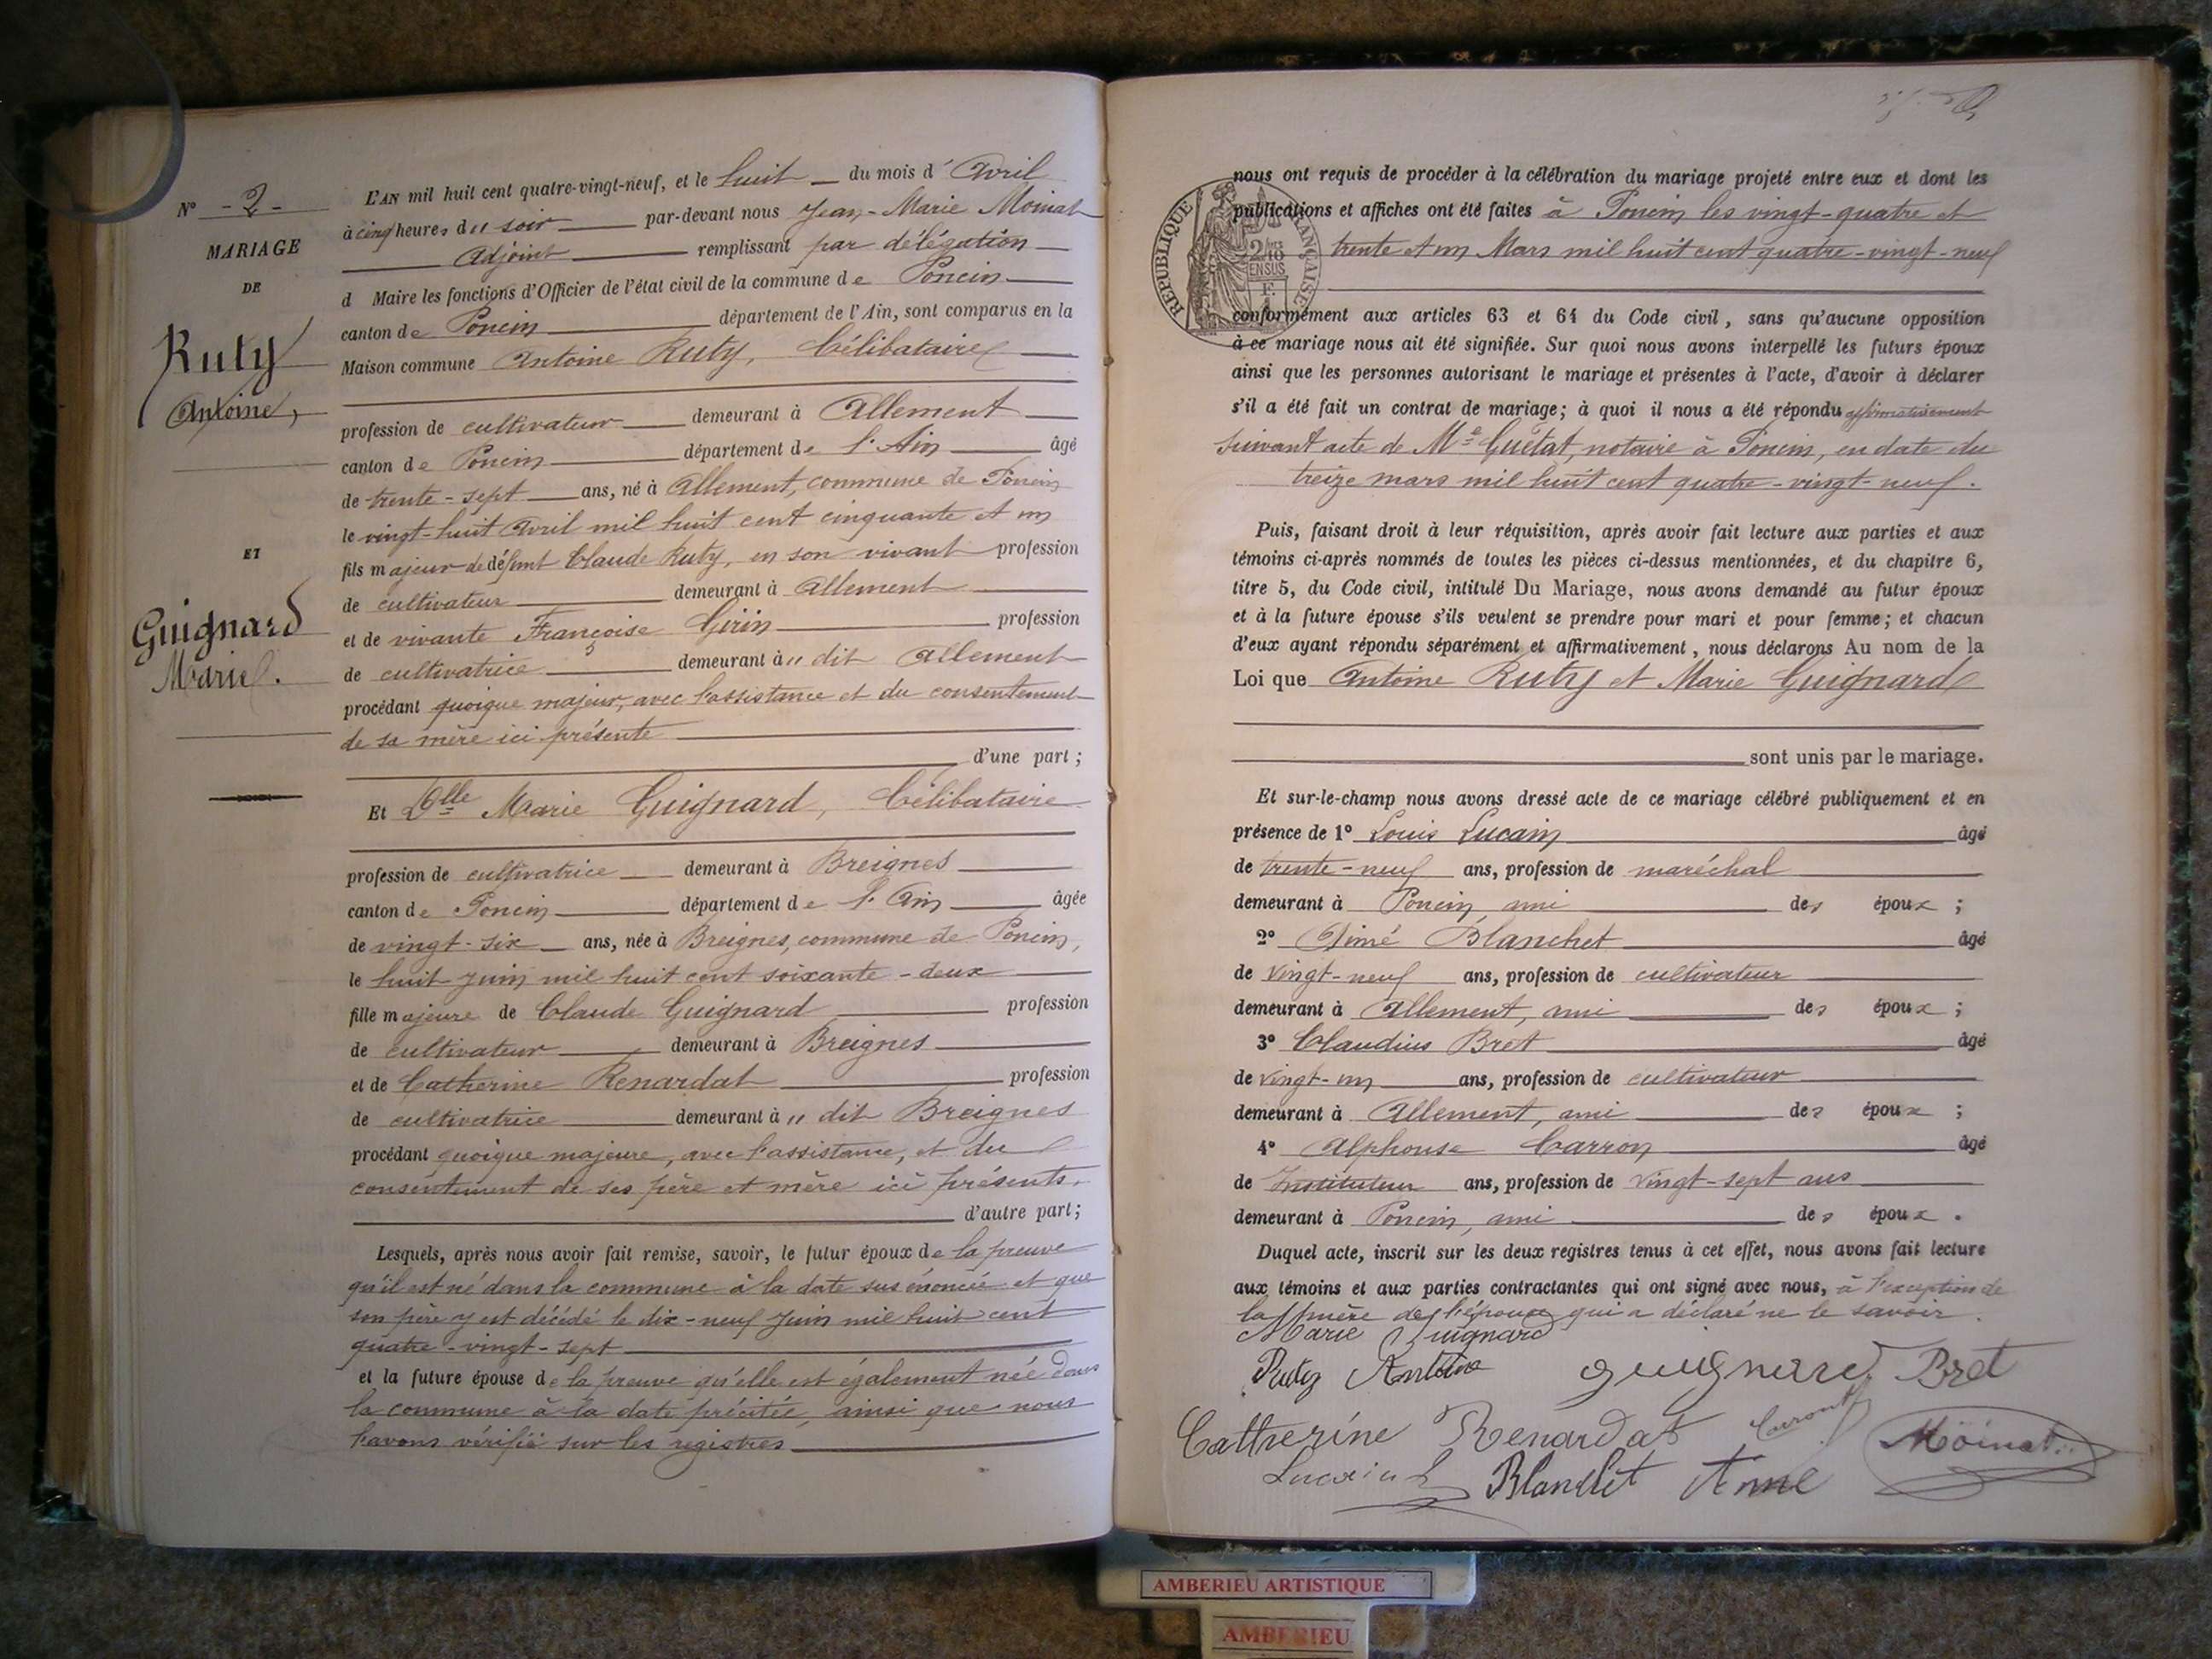 N° - 2 -
MARIAGE
DE
Ruty
Antoine,
ET
Guignard
Marie.
L'AN mil huit cent quatre-vingt-neuf, et le huit du mois d'Avril
à cinq heures du soir par-devant nous Jean-Marie Moinat
Adjoint remplissant par délégation
d Maire les fonctions d'Officier de l'état civil de la commune de Poncin
canton de Poncin département de l'Ain, sont comparus en la
Maison commune Antoine Ruty, Célibataire
profession de cultivateur demeurant à Allement
canton de Poncin département de l'Ain âgé
de trente-sept ans, né à Allement, commune de Poncin
le vingt-huit Avril mil huit cent cinquante et un
fils majeur de défunt Claude Ruty, en son vivant profession
de cultivateur demeurant à Allement
et de vivante Françoise Girin profession
de cultivatrice demeurant à u dit Allement
procédant quoique majeur, avec l'assistance et du consentement
de sa mère ici présente
d'une part ;
Et Dlle Marie Guignard, Célibataire
profession de cultivatrice demeurant à Breignes
canton de Poncin département de l'Ain âgée
de vingt-six ans, née à Breignes, commune de Poncin,
le huit Juin mil huit cent soixante-deux
fille majeure de Claude Guignard profession
de cultivateur demeurant à Breignes
et de Catherine Renardat profession
de cultivatrice demeurant à u dit Breignes
procédant quoique majeure, avec l'assistance, et du
consentement de ses père et mère ici présents.
d'autre part ;
Lesquels, après nous avoir fait remise, savoir, le futur époux de la preuve
qu'il est né dans la commune à la date sus énoncée et que
son père y est décédé le dix-neuf Juin mil huit cent
quatre-vingt-sept
et la future épouse de la preuve qu'elle est également née dans
la commune à la date précitée, ainsi que nous
l'avons vérifié sur les registres
nous ont requis de procéder à la célébration du mariage projeté entre eux et dont les
publications et affiches ont été faites à Poncin les vingt-quatre et
trente et un Mars mil huit cent quatre-vingt-neuf
RÉPUBLIQUE FRANÇAISE
2/10 EN SUS
conformément aux articles 63 et 64 du Code civil, sans qu'aucune opposition
à ce mariage nous ait été signifiée. Sur quoi nous avons interpellé les futurs époux
ainsi que les personnes autorisant le mariage et présentes à l'acte, d'avoir à déclarer
s'il a été fait un contrat de mariage ; à quoi il nous a été répondu affirmativement
suivant acte de Me Guétat, notaire à Poncin, en date du
treize mars mil huit cent quatre-vingt-neuf.
Puis, faisant droit à leur réquisition, après avoir fait lecture aux parties et aux
témoins ci-après nommés de toutes les pièces ci-dessus mentionnées, et du chapitre 6,
titre 5, du Code civil, intitulé Du Mariage, nous avons demandé au futur époux
et à la future épouse s'ils veulent se prendre pour mari et pour femme ; et chacun
d'eux ayant répondu séparément et affirmativement, nous déclarons Au nom de la
Loi que Antoine Ruty et Marie Guignard
sont unis par le mariage.
Et sur-le-champ nous avons dressé acte de ce mariage célébré publiquement et en
présence de 1° Louis Lucain âgé
de trente-neuf ans, profession de maréchal
demeurant à Poncin, ami des époux ;
2° Aimé Blanchet âgé
de vingt-neuf ans, profession de cultivateur
demeurant à Allement, ami des époux ;
3° Claudius Bret âgé
de vingt-un ans, profession de cultivateur
demeurant à Allement, ami des époux ;
4° Alphonse Carron âgé
de Instituteur ans, profession de vingt-sept ans
demeurant à Poncin, ami des époux.
Duquel acte, inscrit sur les deux registres tenus à cet effet, nous avons fait lecture
aux témoins et aux parties contractantes qui ont signé avec nous, à l'exception de
la mère de l'époux qui a déclaré ne le savoir.
Marie Guignard
Ruty Antoine guignard Bret
Catherine Renardat Caront Moinat
Lucain L Blanchet Aimé
AMBERIEU ARTISTIQUE
AMBERIEU